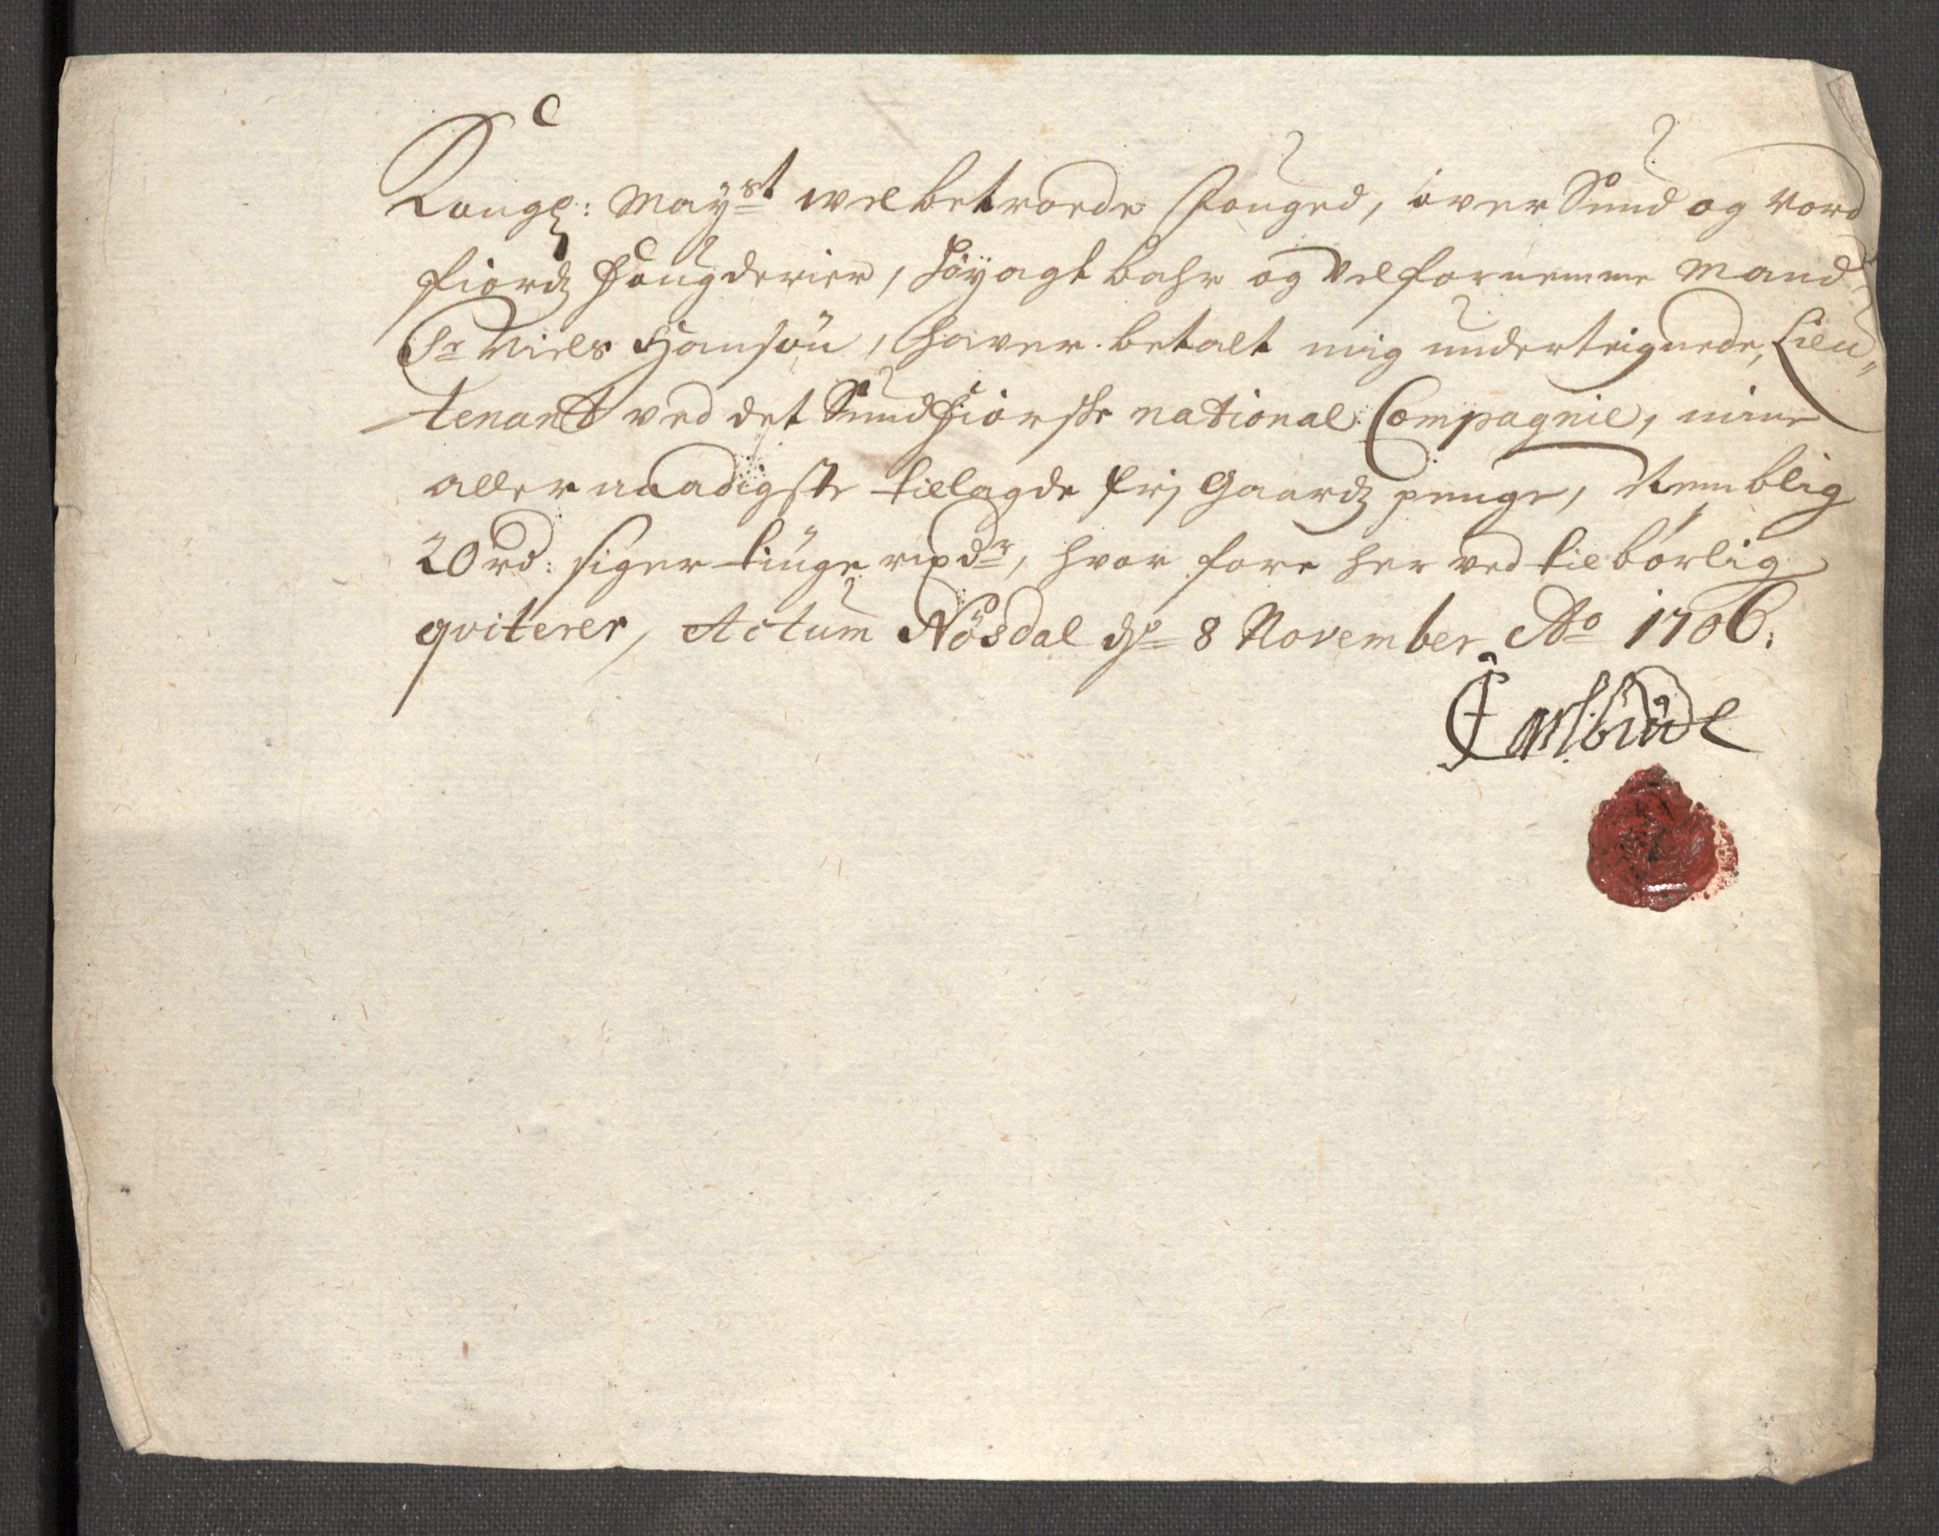 Kongl: Mayst welbetroede Fouged, over Sund og Nord
fiordz fougderier, høyagtbahr og velfornemme Mand
Sr Niels Hansøn, haver betalt mig underteignede, Lieu-
tenant ved det Sundfiorske national Compagnie, mine
allernaadigste tillagde frj Gaardz penge, Nemblig
20 rd: siger tiuge rixdr, hvor fore her ved tilbørlig
qviterer, Actum Nösdal do 8 November Ao 1706.
Carl